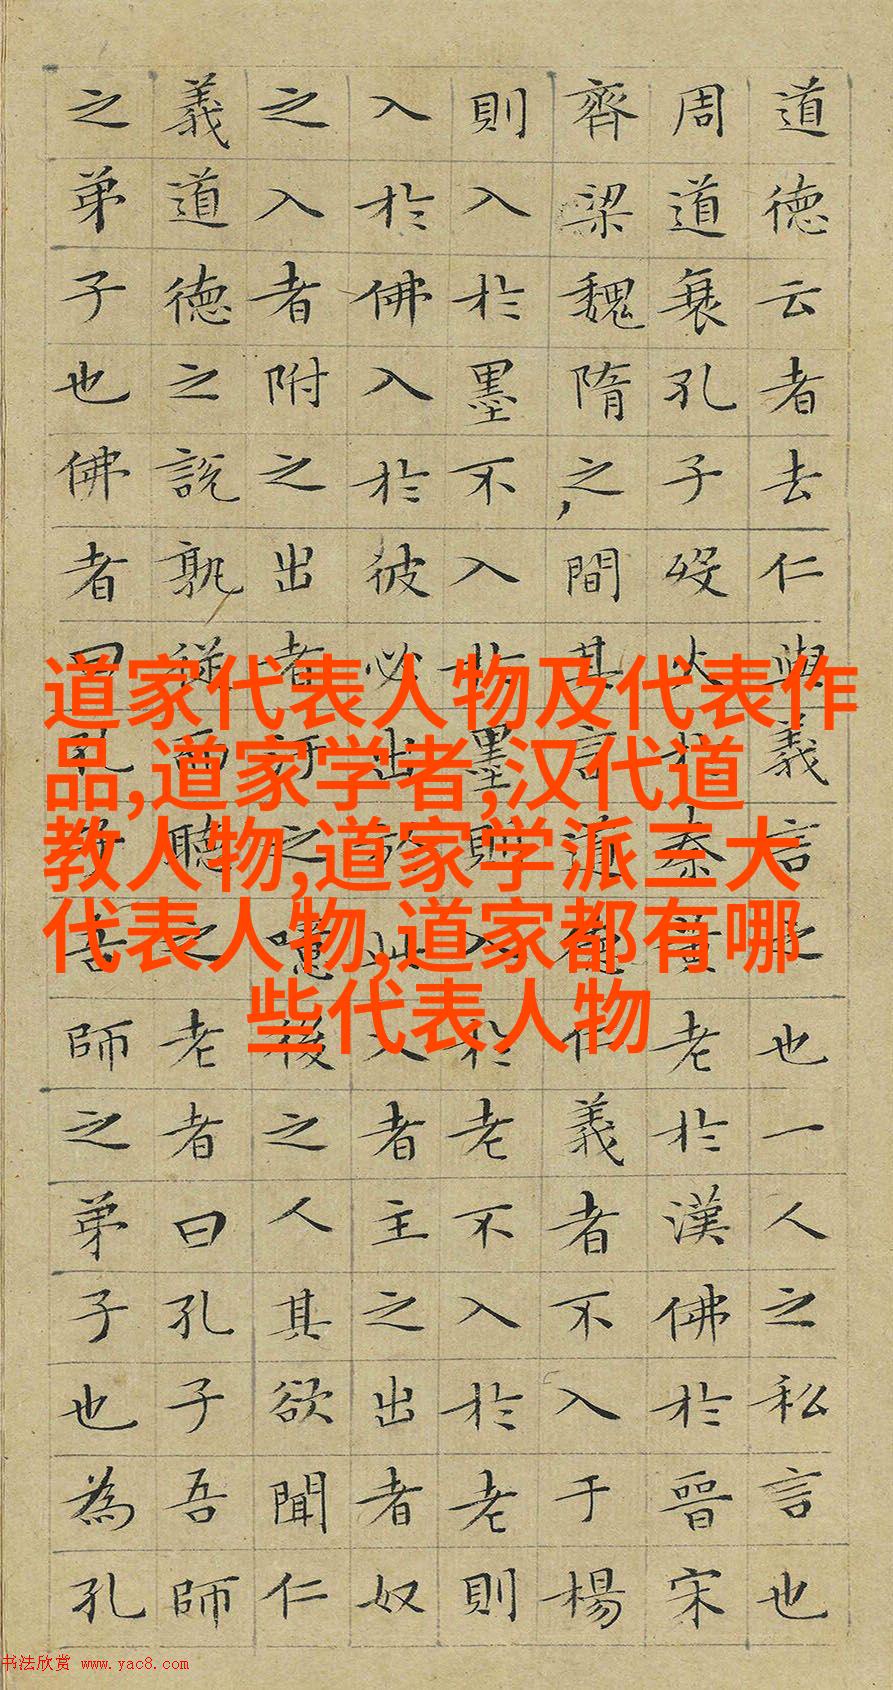 道德云者去仁與義言之也一人之私言也
周道衰孔子歿火於秦黃老於漢佛於晉宋
齊梁魏隋之間其言道德仁義者不入于楊
則入於墨不入於墨則入於老不入於老則
入於佛入於彼必出於此入者主之出者奴
之入者附之出者之噫後之人其欲聞仁
義道德之說孰從而聽之老者曰孔子吾師
之弟子也佛者曰孔子吾師之弟子也為孔
道家代表人物及代表作
品,道家学者,汉代道
教人物,道家学派三大
代表人物,道家都有哪
些代表人物
书法欣赏 www.yac8.com